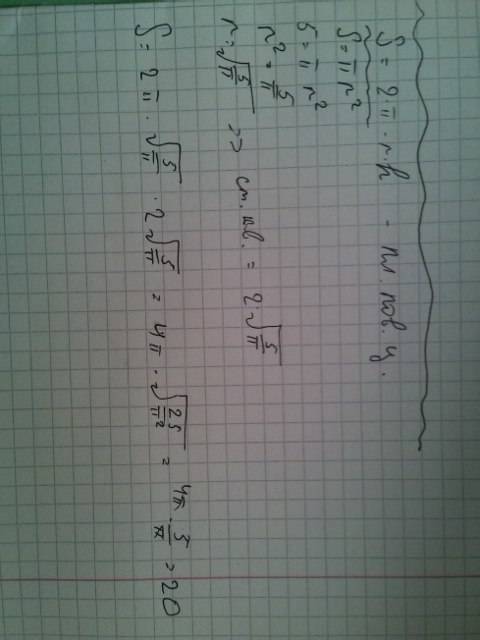 S = 2·π·r·h - пл. пов. ц.
S = π r²
5 = π r²
r² = 5/π
r = √(5/π) >> ст. кв. = 2·√(5/π)
S = 2π · √(5/π) · 2√(5/π) = 4π · √(25/π²) = 4π · 5/π = 20